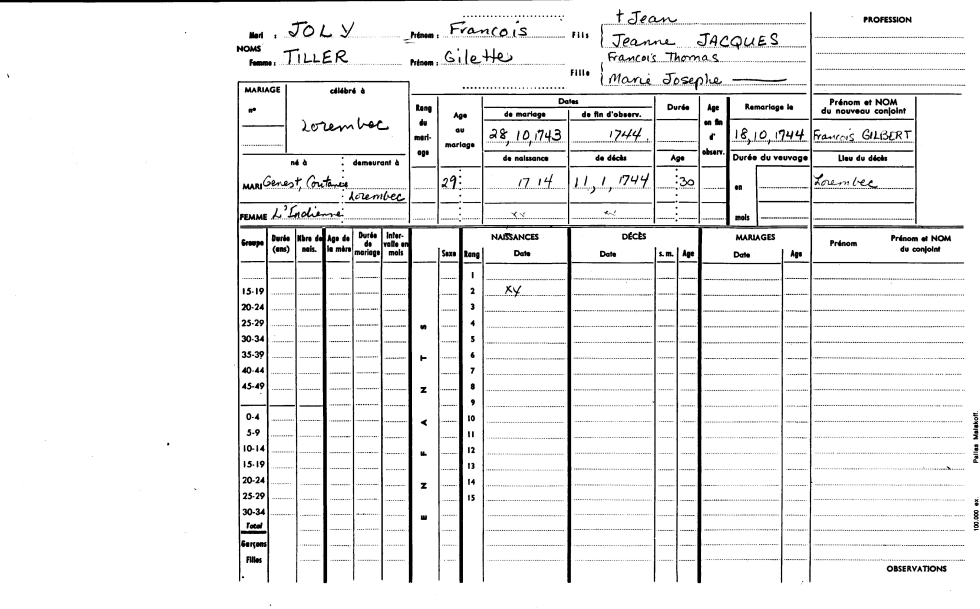 Mari : JOLY Prénom : François Fils † Jean
Jeanne JACQUES
NOMS
Femme : TILLER Prénom : Gilette Fille François Thomas
Marie Josephe
PROFESSION
MARIAGE célébré à
n° Lorembec
Rang du mariage
Age au mariage
Dates
de mariage de fin d'observ.
28, 10, 1743 1744
Durée
Age en fin d'observ.
Remariage le
18, 10, 1744
Prénom et NOM du nouveau conjoint
François GILBERT
né à demeurant à
de naissance de décès Age
Durée du veuvage
Lieu du décès
MARI Genest, Coutances Lorembec 29 1714 11, 1, 1744 30 en Lorembec
FEMME L'Indienne xy mois
Groupe Durée (ans) Nbre de nais. Age de la mère Durée de mariage Intervalle en mois
ENFANTS
Sexe Rang
NAISSANCES Date
DÉCÈS Date s. m. Age
MARIAGES Date Age
Prénom Prénom et NOM du conjoint
1
15-19 2 xy
20-24 3
25-29 4
30-34 5
35-39 6
40-44 7
45-49 8
9
0-4 10
5-9 11
10-14 12
15-19 13
20-24 14
25-29 15
30-34
Total
Garçons
Filles
OBSERVATIONS
100.000 ex. Pallas Malakoff.